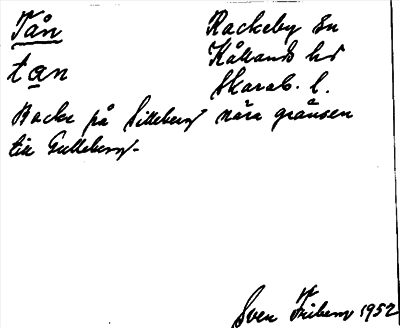 Tån Rackeby sn
tan Kållands hd
Skarab. l.
Backe på Silleberg nära gränsen
till Gulleberg.
Sven Friberg 1952